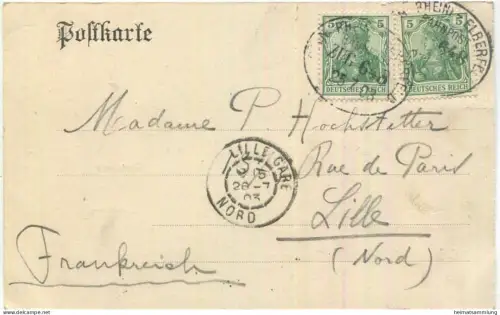 Postkarte
5 5 5 5
DEUTSCHES REICH DEUTSCHES REICH
BAHNPOST
Madame P. Hochstetter
Rue de Paris
Lille
(Nord)
LILLE GARE
26 - 7
03
NORD
Frankreich
heimatsammlung.com